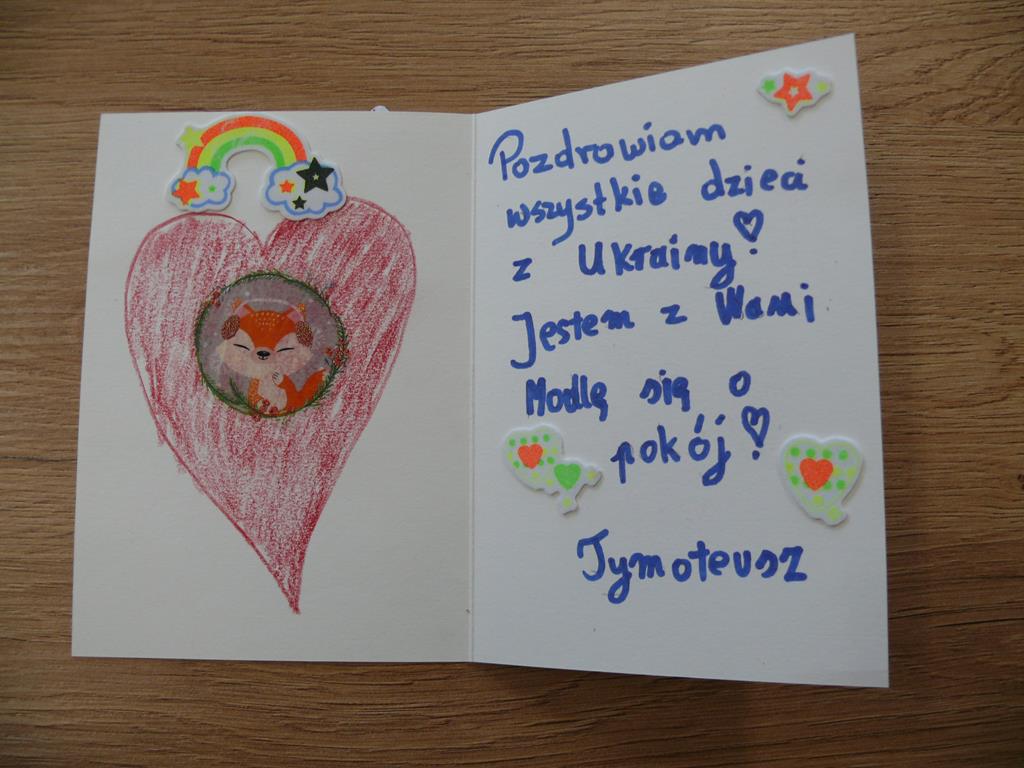 Pozdrowiam
wszystkie dzieci
z Ukrainy!
Jestem z Wami
Modlę się o
pokój!
Tymoteusz